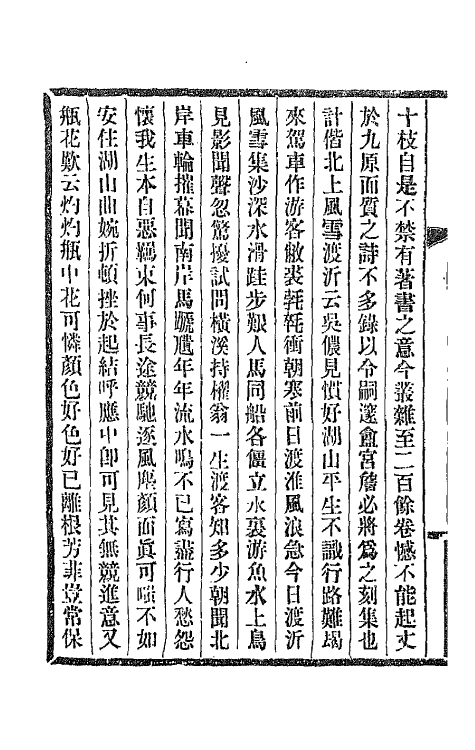 十枝自是不禁有著書之意今叢雜至二百餘卷憾不能起丈
於九原而質之詩不多錄以令嗣邃盦宮詹必將爲之刻集也
計偕北上風雪渡沂云吳儂見慣好湖山平生不識行路難曷
來駕車作游客敝裘毿毿衝朝寒前日渡淮風浪急今日渡沂
風雪集沙深水滑跬步艱人馬同船各僵立水裏游魚水上鳥
見影聞聲忽驚擾試問橫溪持櫂翁一生渡客知多少朝聞北
岸車輪摧暮聞南岸馬虺隤年年流水鳴不已寫盡行人愁怨
懷我生本自惡羈束何事長途競馳逐風塵顏面眞可嗤不如
安住湖山曲婉折頓挫於起結呼應中卽可見其無競進意又
瓶花歎云灼灼瓶中花可憐顏色好色好已離根芳菲豈常保